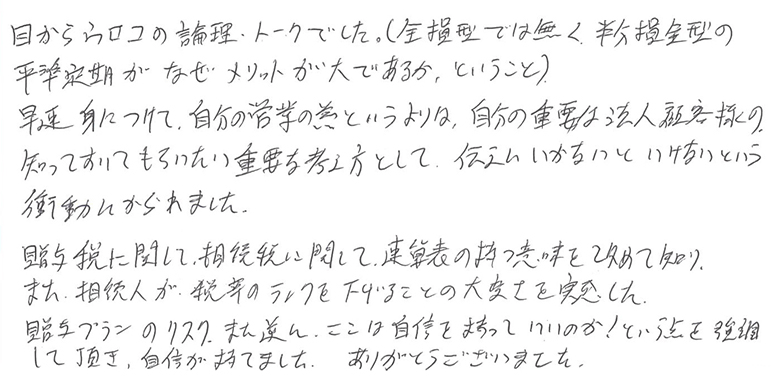 目からウロコの論理・トークでした。(全損型では無く、半分損金型の
平準定期がなぜメリットが大であるか、ということ)
早速身につけて、自分の営業の為というよりは、自分の重要な法人顧客様の、
知っておいてもらいたい重要な考え方として、伝えにいかないといけないという
衝動にかられました。
贈与税に関して、相続税に関して、速算表の持つ意味を改めて知り、
また、相続人が、税率のランクを下げることの大変さを実感した。
贈与プランのリスク、また逆に、ここは自信をもっていいのか!という点を強調
して頂き、自信が持てました。 ありがとうございました。